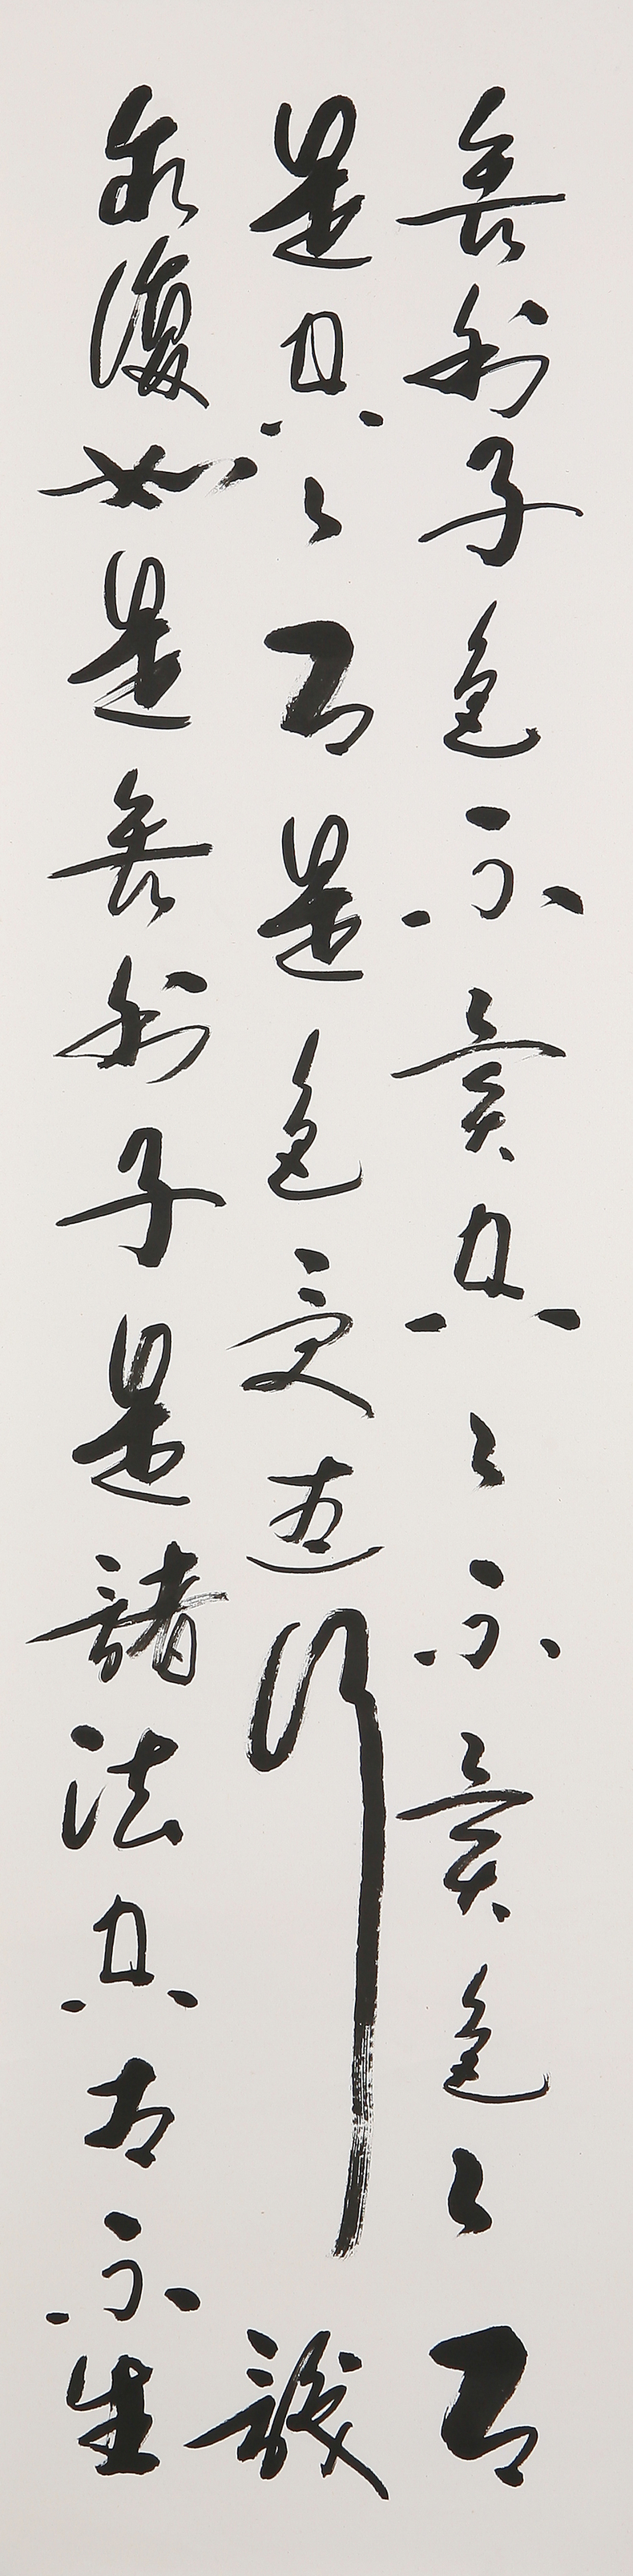 舍利子色不異空々不異色々即
是空々即是色受想行識
亦復如是舍利子是諸法空相不生